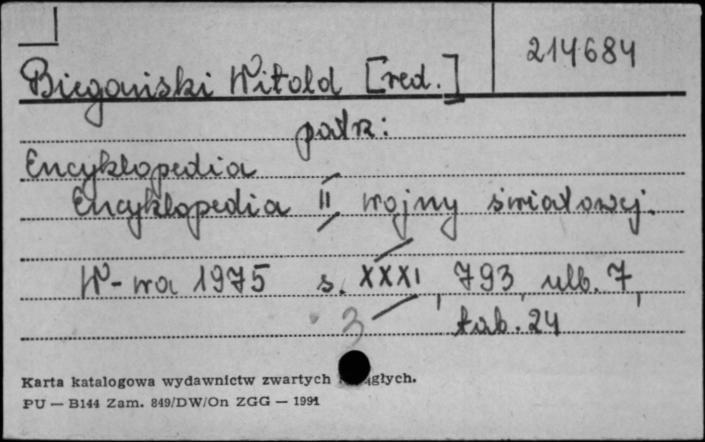 214684
Biegański Witold [red.]
patrz:
Encyklopedia
Encyklopedia II wojny światowej.
W-wa 1975 s. XXXI, 793, ulb. 7,
3 tab. 24
Karta katalogowa wydawnictw zwartych
PU — B144 Zam. 849/DW/On ZGG — 1991